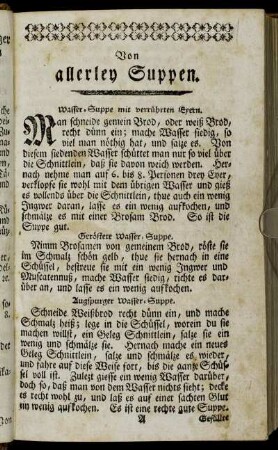 Von
allerley Suppen.
Wasser-Suppe mit verrührten Eyern.
Man schneide gemein Brod, oder weiß Brod,
recht dünn ein; mache Wasser siedig, so
viel man nöthig hat, und salze es. Von
diesem siedenden Wasser schüttet man nur so viel über
die Schnittlein, daß sie davon weich werden. Her-
nach nehme man auf 6. bis 8. Personen drey Eyer,
verklopfe sie wohl mit dem übrigen Wasser und gieß
es vollends über die Schnittlein, thue auch ein wenig
Ingwer daran, lasse es ein wenig aufkochen, und
schmälze es mit einer Brosam Brod. So ist die
Suppe gut.
Geröstete Wasser-Suppe.
Nimm Brosamen von gemeinem Brod, röste sie
im Schmalz schön gelb, thue sie hernach in eine
Schüssel, bestreue sie mit ein wenig Ingwer und
Muscatennuß, mache Wasser siedig, richte es dar-
über an, und lasse es ein wenig aufkochen.
Augspurger Wasser-Suppe.
Schneide Weißbrod recht dünn ein, und mache
Schmalz heiß; lege in die Schüssel, worein du sie
machen willst, ein Geleg Schnittlein, salze sie ein
wenig und schmälze sie. Hernach mache ein neues
Geleg Schnittlein, salze und schmälze es wieder,
und fahre auf diese Weise fort, bis die ganze Schüs-
sel voll ist. Zulezt giesse ein wenig Wasser darüber,
doch so, daß man von dem Wasser nichts sieht; decke
es recht wohl zu, und laß es auf einer sachten Glut
ein wenig aufkochen. Es ist eine recht gute Suppe.
A Gefüllte